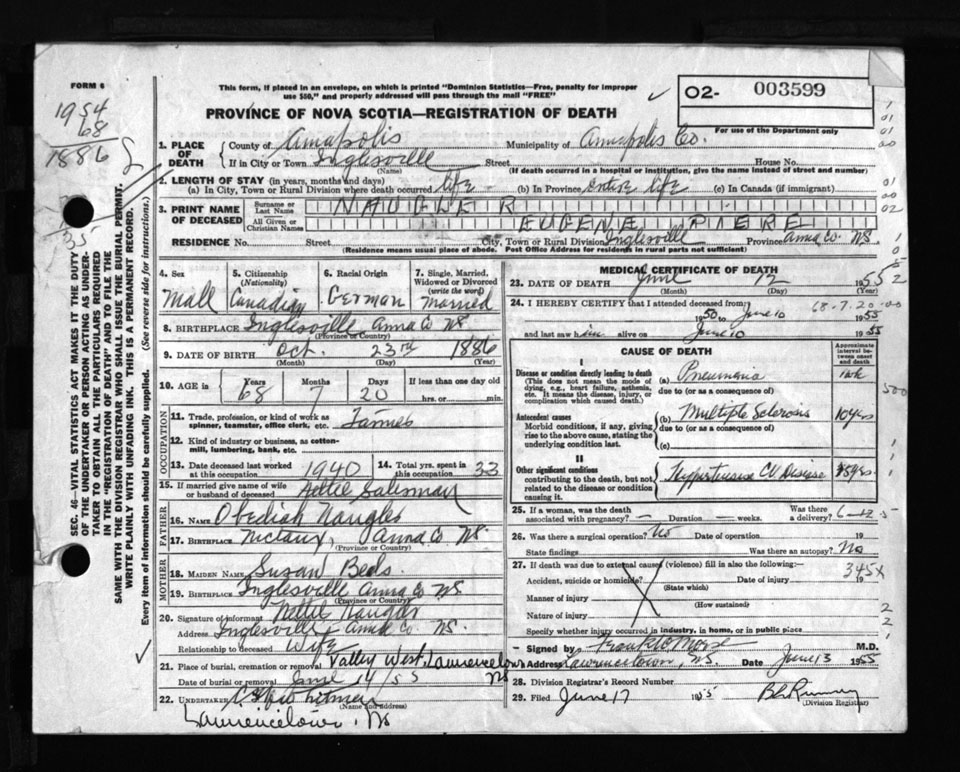 FORM 6
This form, if placed in an envelope, on which is printed "Dominion Statistics—Free, penalty for improper
use $50," and properly addressed will pass through the mail "FREE"
02- 003599
For use of the Department only
PROVINCE OF NOVA SCOTIA—REGISTRATION OF DEATH
1954
68
1886
35
SEC. 46—VITAL STATISTICS ACT MAKES IT THE DUTY
OF THE UNDERTAKER OR PERSON ACTING AS UNDER-
TAKER TO OBTAIN ALL THE PARTICULARS REQUIRED
IN THE "REGISTRATION OF DEATH" AND TO FILE THE
SAME WITH THE DIVISION REGISTRAR WHO SHALL ISSUE THE BURIAL PERMIT.
WRITE PLAINLY WITH UNFADING INK. THIS IS A PERMANENT RECORD.
Every item of information should be carefully supplied. (See reverse side for instructions.)
1. PLACE OF DEATH County of Annapolis Municipality of Annapolis Co.
If in City or Town Inglesville (Name) Street House No.
(If death occurred in a hospital or institution, give the name instead of street and number)
2. LENGTH OF STAY (in years, months and days)
(a) In City, Town or Rural Division where death occurred life (b) In Province entire life (c) In Canada (if immigrant)
3. PRINT NAME OF DECEASED Surname or Last Name NAUGLER
All Given or Christian Names EUGENE PIERE
RESIDENCE No. Street City, Town or Rural Division Inglesville Province Anna Co NS
(Residence means usual place of abode. Post Office Address for residents in rural parts not sufficient)
4. Sex Mall
5. Citizenship (Nationality) Canadian
6. Racial Origin German
7. Single, Married, Widowed or Divorced (write the word) Married
8. BIRTHPLACE Inglesville Anna Co NS
(Province or Country)
9. DATE OF BIRTH Oct. 23rd 1886
(Month) (Day) (Year)
10. AGE in Years 68 Months 7 Days 20 If less than one day old hrs. or min.
OCCUPATION
11. Trade, profession, or kind of work as spinner, teamster, office clerk, etc.
12. Kind of industry or business, as cotton-mill, lumbering, bank, etc.
13. Date deceased last worked at this occupation 1940
14. Total yrs. spent in this occupation 33
15. If married give name of wife or husband of deceased
FATHER
16. NAME Obediah
17. BIRTHPLACE Anna Co NS
(Province or Country)
MOTHER
18. MAIDEN NAME Susan
19. BIRTHPLACE Inglesville Anna Co NS.
(Province or Country)
20. Signature of informant Nettie Naugler
Address Inglesville Anna Co. NS.
Relationship to deceased Wife
21. Place of burial, cremation or removal Valley West, Lawrencetown NS
Date of burial or removal June 14/55
22. UNDERTAKER
(Name and address)
Lawrencetown, NS
MEDICAL CERTIFICATE OF DEATH
23. DATE OF DEATH June 12 1955
(Month) (Day)
24. I HEREBY CERTIFY that I attended deceased from 68-7-20-00
1950 to June 10 1955
and last saw him alive on June 10 1955
CAUSE OF DEATH
Approximate interval between onset and death
I
Disease or condition directly leading to death (a) Pneumonia 1wk
(This does not mean the mode of dying, e.g., heart failure, asthenia, etc. It means the disease, injury, or complication which caused death.)
due to (or as a consequence of)
Antecedent causes (b) Multiple Sclerosis 10 yrs
Morbid conditions, if any, giving rise to the above cause, stating the underlying condition last.
due to (or as a consequence of)
(c)
II
Other significant conditions contributing to the death, but not related to the disease or condition causing it. Hypertensive CV Disease
25. If a woman, was the death associated with pregnancy? — Duration — weeks. Was there a delivery?
26. Was there a surgical operation? No Date of operation 19
State findings Was there an autopsy? No
27. If death was due to external causes (violence) fill in also the following: 345x
Accident, suicide or homicide? Date of injury 19
(State which)
Manner of injury
(How sustained)
Nature of injury
Specify whether injury occurred in industry, in home, or in public place
Signed by M.D.
Address Lawrencetown, NS. Date June 13 1955
28. Division Registrar's Record Number
29. Filed June 17 1955
(Division Registrar)